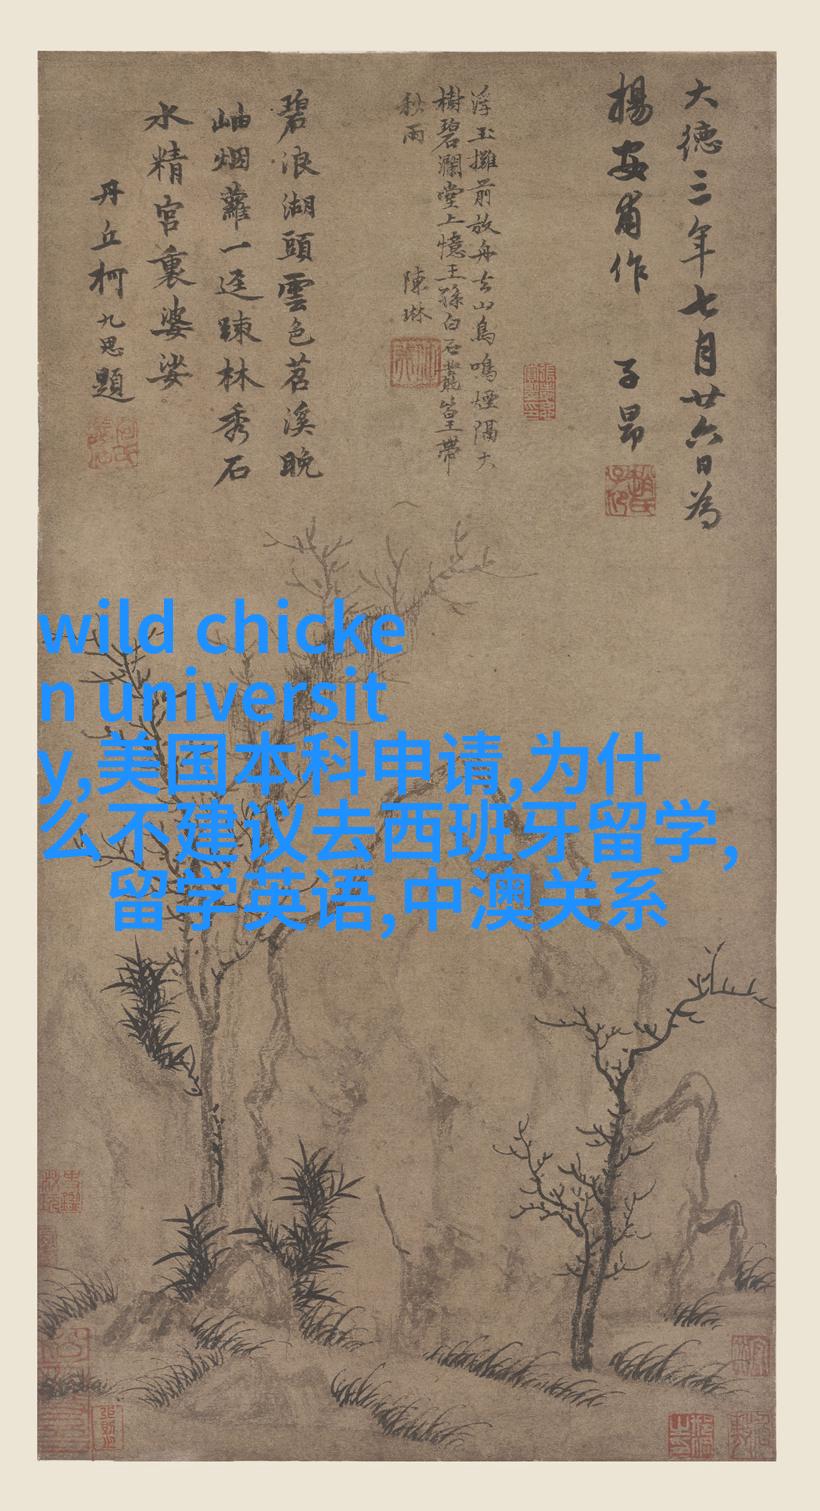 大德三年七月廿六日為
楊安甫作　子昂
浮玉攤前放舟去山鳥鳴煙隔大
樹碧瀾堂上憶王孫白石叢篁帶
秋雨　陳琳
碧浪湖頭雲色苕溪晚
岫烟蘿一逕踈林秀石
水精宮裏婆娑
丹丘柯九思題
wild chicke
n universit
y,美国本科申请,为什
么不建议去西班牙留学,
留学英语,中澳关系